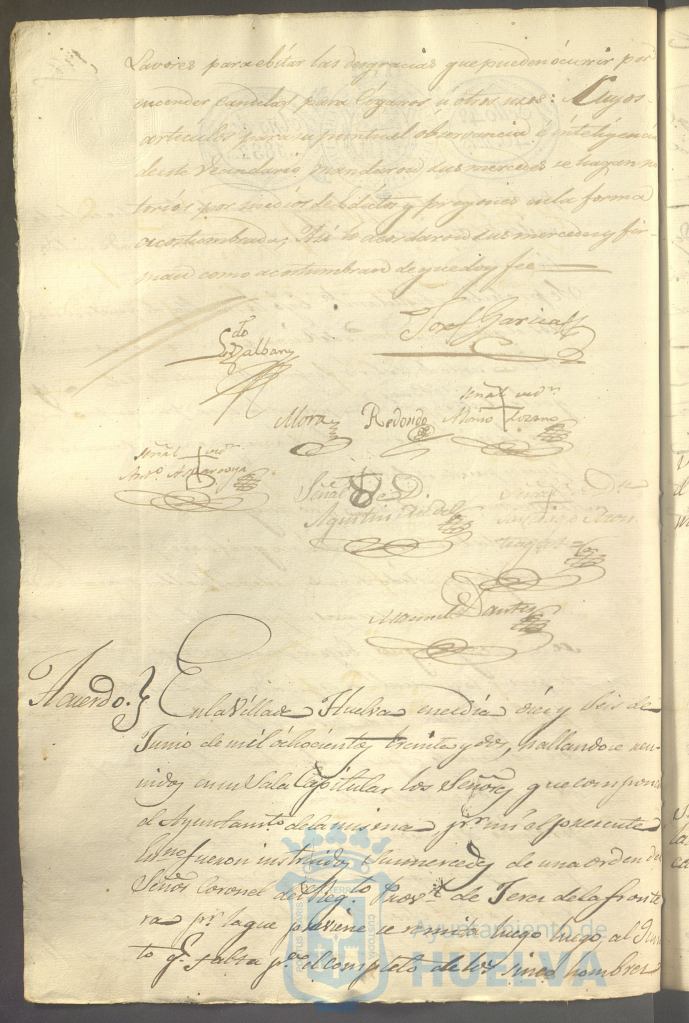 Lavores para ebitar las desgracias que pueden ocurrir por
encender candelas para Cigarros ú otros usos: Cuyos
articulos para su puntual observancia é inteligencia
de este Vecindario, mandaron sus mercedes se hagan no
torios por medios de Edictos y pregones en la forma
acostumbrada, Asi lo acordaron sus mercedes y fir-
man como acostumbran de que doy fee
José Garica
Mora Redondo
Señal
Señal
Señal De D.
Agustin
Manuel
Acuerdo. } En la Villa de Huelva en el dia diez y seis de
Junio de mil ochocientos treinta y dos, hallandose reu-
nidos en su Sala Capitular los Señores que componen
el Ayuntamto. de la misma pr. mi el presente
Esno. fueron instruidos sus mercedes de una orden del
Señor Coronel del Regto. Provl. de Jerez de la fronte
ra pr. la que previene se remita luego luego, al
to q. falta pa. el completo de los cinco hombres
Ayuntamiento de
HUELVA